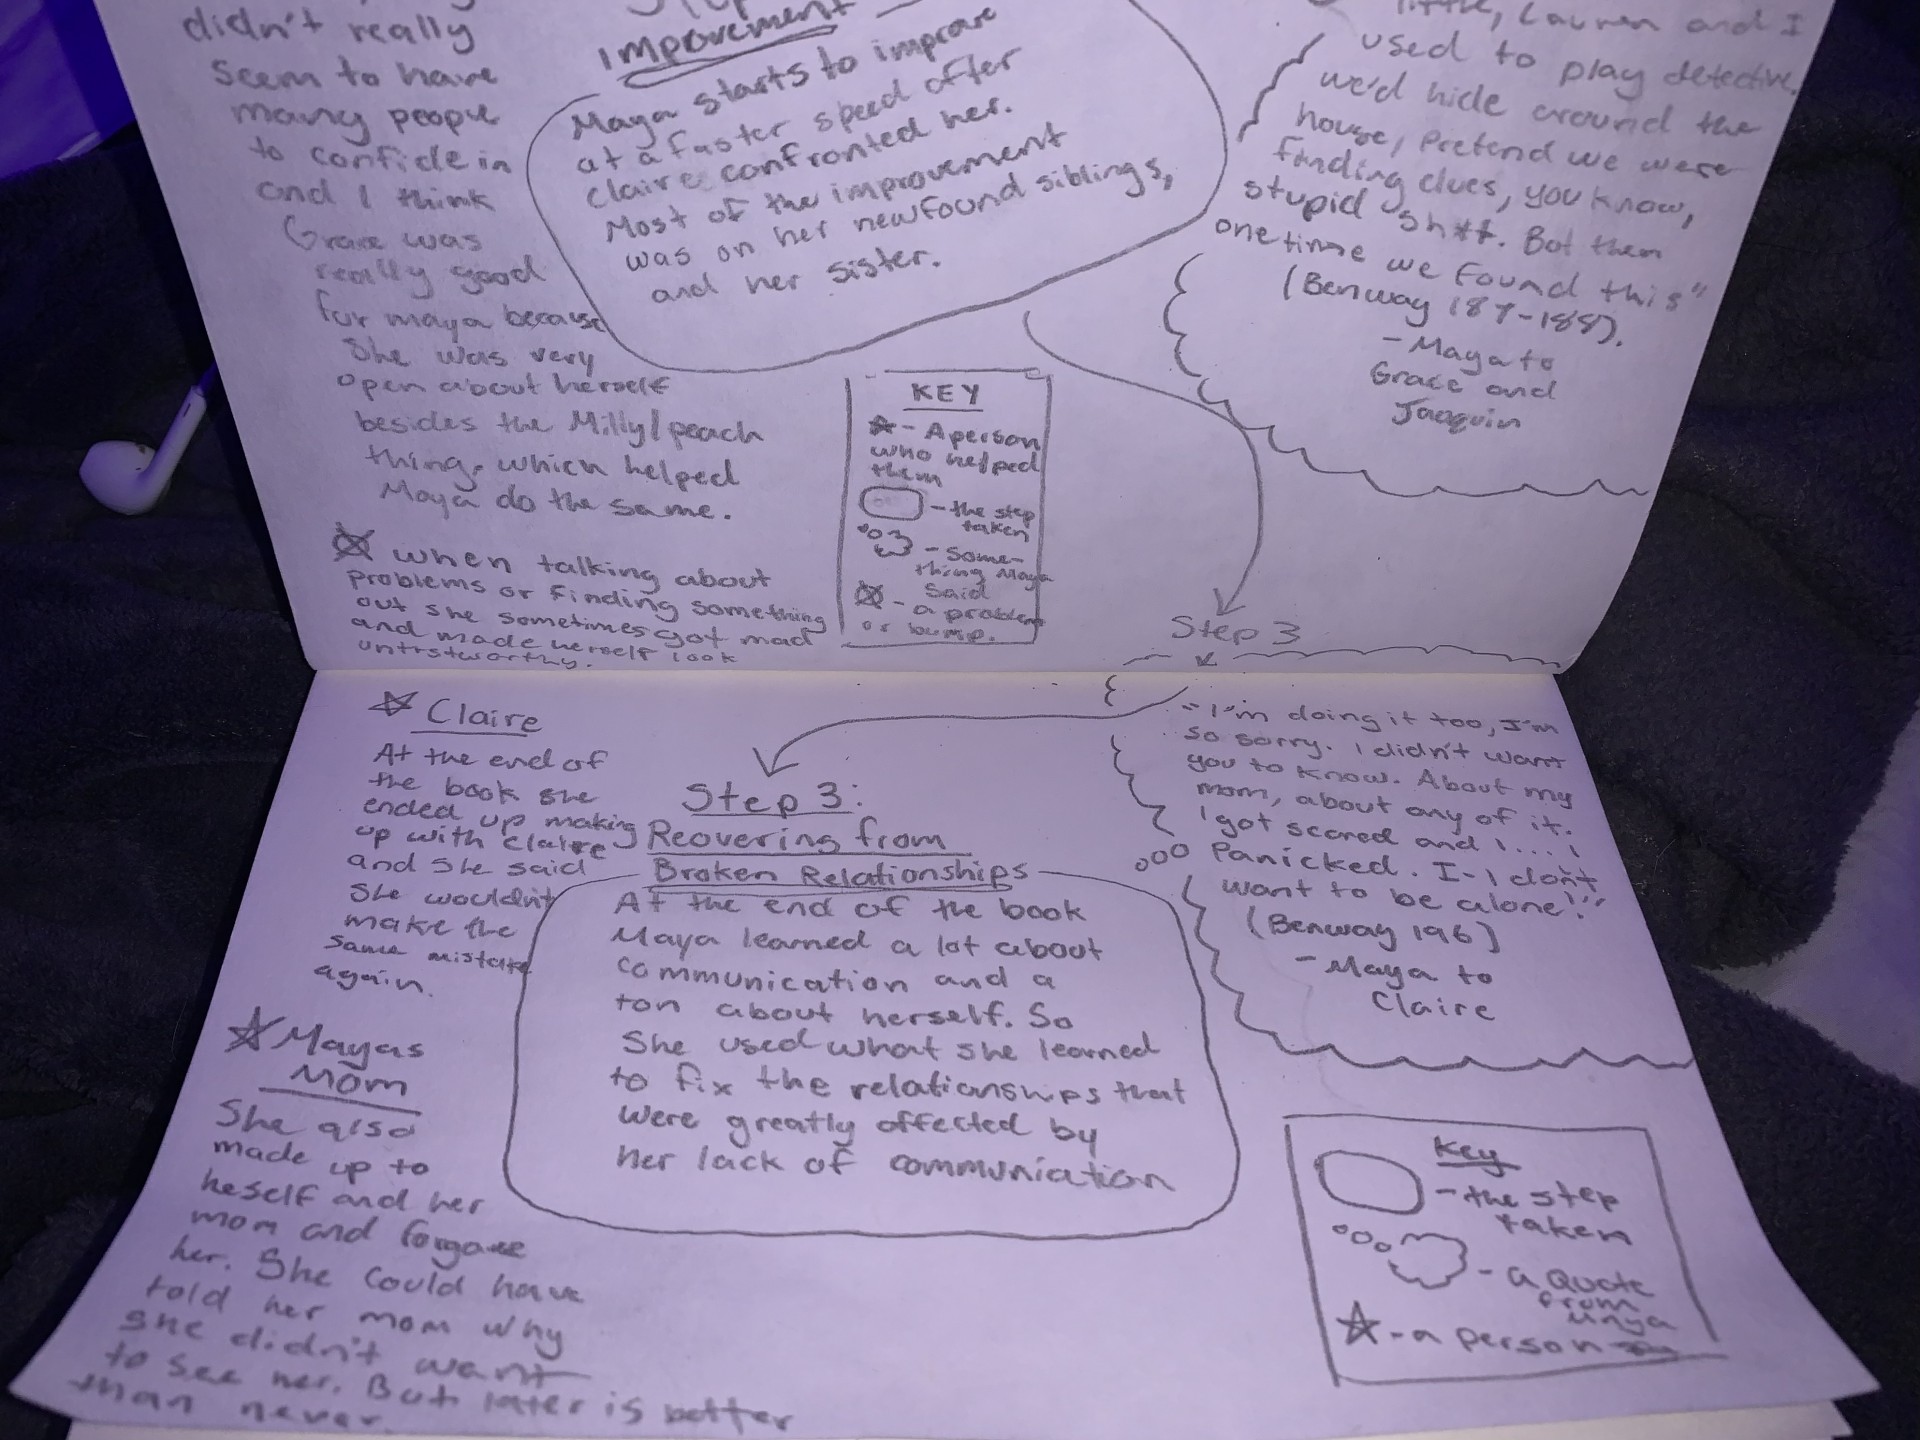 didn't really
seem to have
many people
to confide in
and I think
Grace was
really good
for maya because
She was very
open about herself
besides the Milly/peach
thing, which helped
Maya do the same.
when talking about
problems or finding something
out she sometimes got mad
and made herself look
untrstworthy.
Improvement
Maya starts to improve
at a faster speed after
Claire confronted her.
Most of the improvement
was on her newfound siblings,
and her sister.
KEY
- A person
who helped
them
- the step
taken
- some-
thing Maya
Said
- a problem
or bump.
little, Lauren and I
used to play detective.
we'd hide around the
house, Pretend we were
finding clues, you know,
stupid sh*t. But then
one time we found this"
(Benway 187-188).
- Maya to
Grace and
Joaquin
Step 3
Claire
At the end of
the book she
ended up making
up with Claire
and she said
She wouldn't
make the
same mistake
again.
Mayas
Mom
She also
made up to
heself and her
mom and forgave
her. She could have
told her mom why
she didn't want
to see her. But later is better
than never.
Step 3:
Reovering from
Broken Relationships
At the end of the book
Maya learned a lot about
communication and a
ton about herself. So
She used what she learned
to fix the relationships that
were greatly affected by
her lack of communiation
"I'm doing it too, I'm
so sorry. I didn't want
you to know. About my
mom, about any of it.
I got scared and I.... I
Panicked. I-I don't
want to be alone!"
(Benway 196)
- Maya to
Claire
Key
- the step
taken
- a Quote
from
Maya
- a person